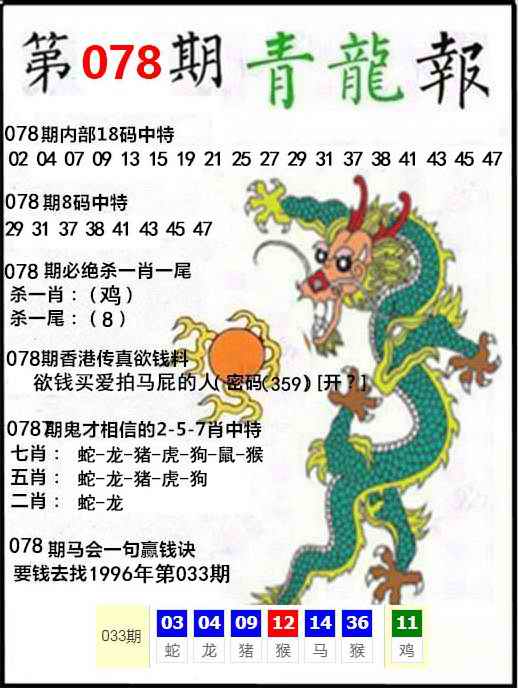 第078期青龍報
078期内部18码中特
02 04 07 09 13 15 19 21 25 27 29 31 37 38 41 43 45 47
078期8码中特
29 31 37 38 41 43 45 47
078 期必绝杀一肖一尾
杀一肖：（鸡）
杀一尾：（8）
078期香港传真欲钱料
欲钱买爱拍马屁的人( 密码(359) [开？]
078期鬼才相信的2-5-7肖中特
七肖： 蛇-龙-猪-虎-狗-鼠-猴
五肖： 蛇-龙-猪-虎-狗
二肖： 蛇-龙
078 期马会一句赢钱诀
要钱去找1996年第033期
033期 03 04 09 12 14 36 11
蛇 龙 猪 猴 马 猴 鸡